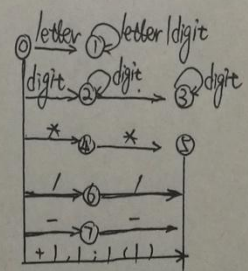 0 letter 1 letter|digit
digit 2 digit 3 digit
* 4 * 5
/ 6 /
- 7 -
+ ) , | ; | ( | )